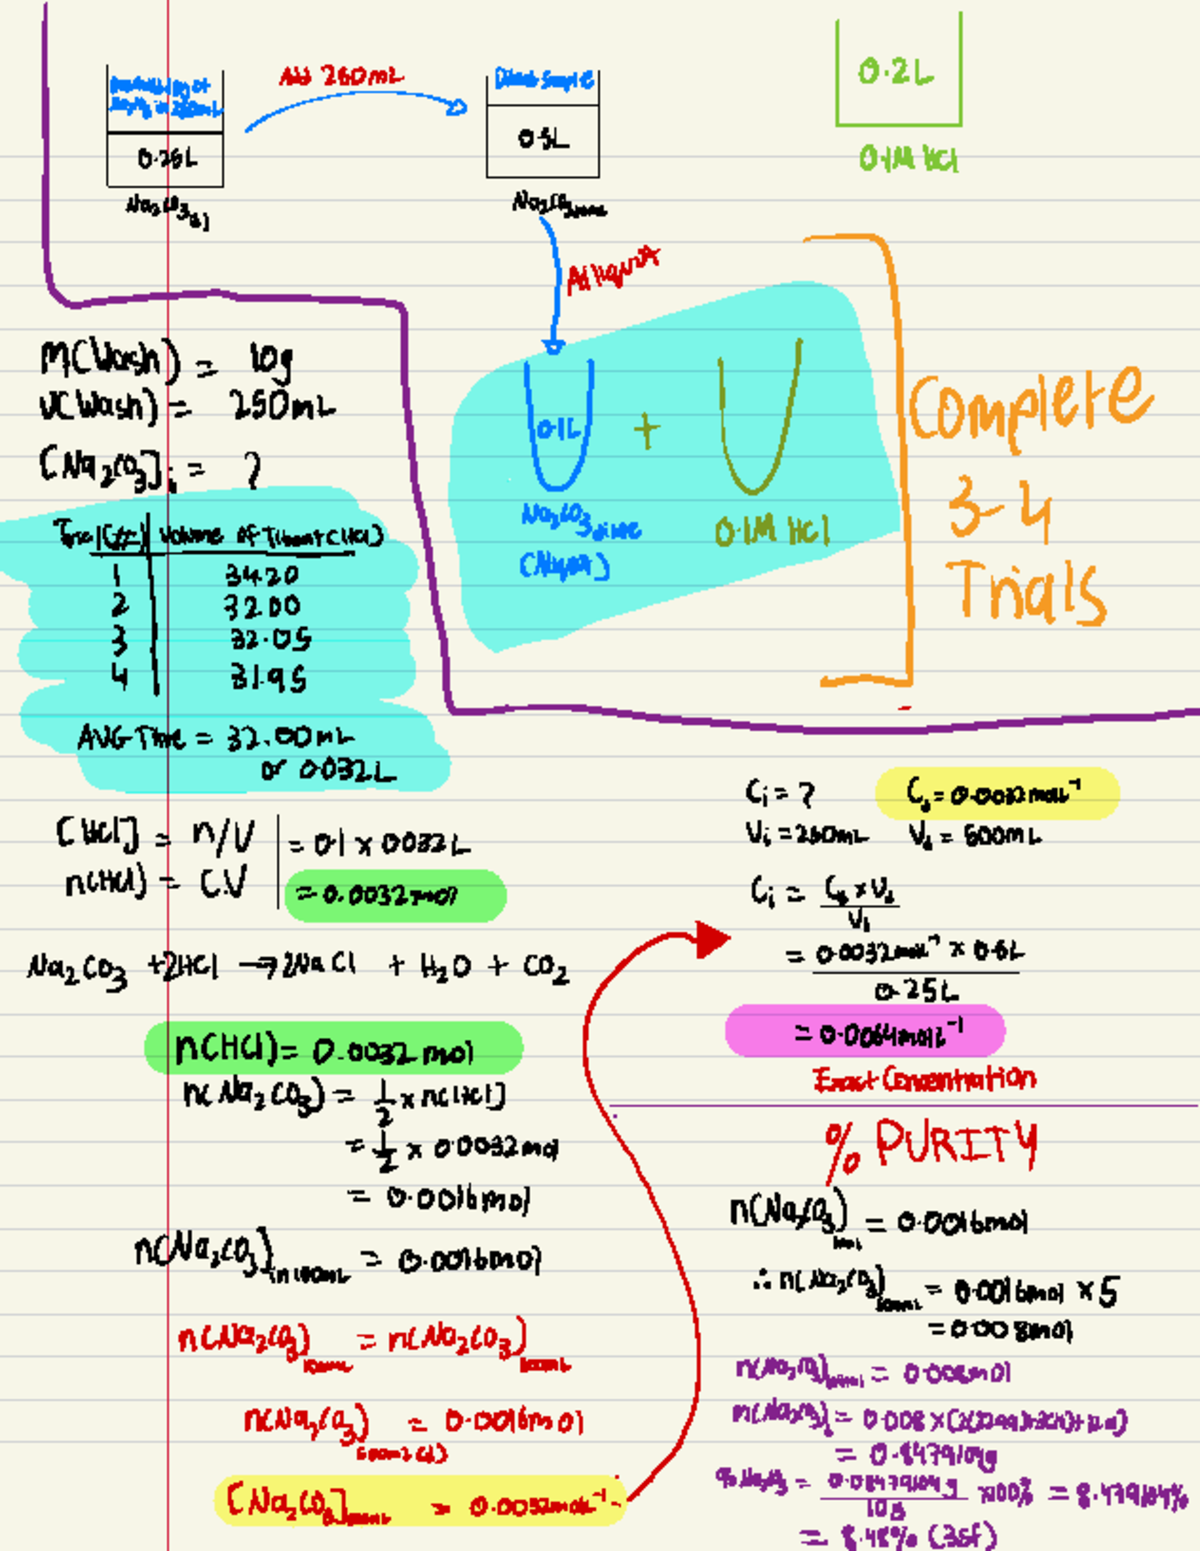 Add 260mL
0.25L
Na2CO3(s)
Dilute Sample
0.5L
Na2CO3
0.2L
0.1M HCl
Aliquot
0.1L
+
Na2CO3 dilute
(Aliquot)
0.1M HCl
Complete
3-4
Trials
M(Wash) = 10g
V(Wash) = 250mL
[Na2CO3]i = ?
Trial(#) Volume of Titrant(HCl)
1 34.20
2 32.00
3 32.05
4 31.95
AVG Titre = 32.00mL
or 0.032L
[HCl] = n/V = 0.1 x 0.032L
n(HCl) = C.V = 0.0032mol
Na2CO3 + 2HCl → 2NaCl + H2O + CO2
n(HCl) = 0.0032 mol
n(Na2CO3) = 1/2 x n(HCl)
= 1/2 x 0.0032mol
= 0.0016mol
n(Na2CO3) in 100mL = 0.0016mol
n(Na2CO3) = n(Na2CO3)
n(Na2CO3) = 0.0016mol
[Na2CO3] = 0.0032molL⁻¹
Ci = ? Cd = 0.0032molL⁻¹
Vi = 250mL Vd = 500mL
Ci = Cd x Vd / Vi
= 0.0032molL⁻¹ x 0.5L / 0.25L
= 0.0064molL⁻¹
Exact Concentration
% PURITY
n(Na2CO3) = 0.0016mol
∴ n(Na2CO3) = 0.0016mol x 5
= 0.008mol
n(Na2CO3) = 0.008mol
m(Na2CO3) = 0.008 x
= 0.8479104g
% Na2CO3 = 0.08479104g / 10g x100% = 8.479104%
= 8.48% (3sf)